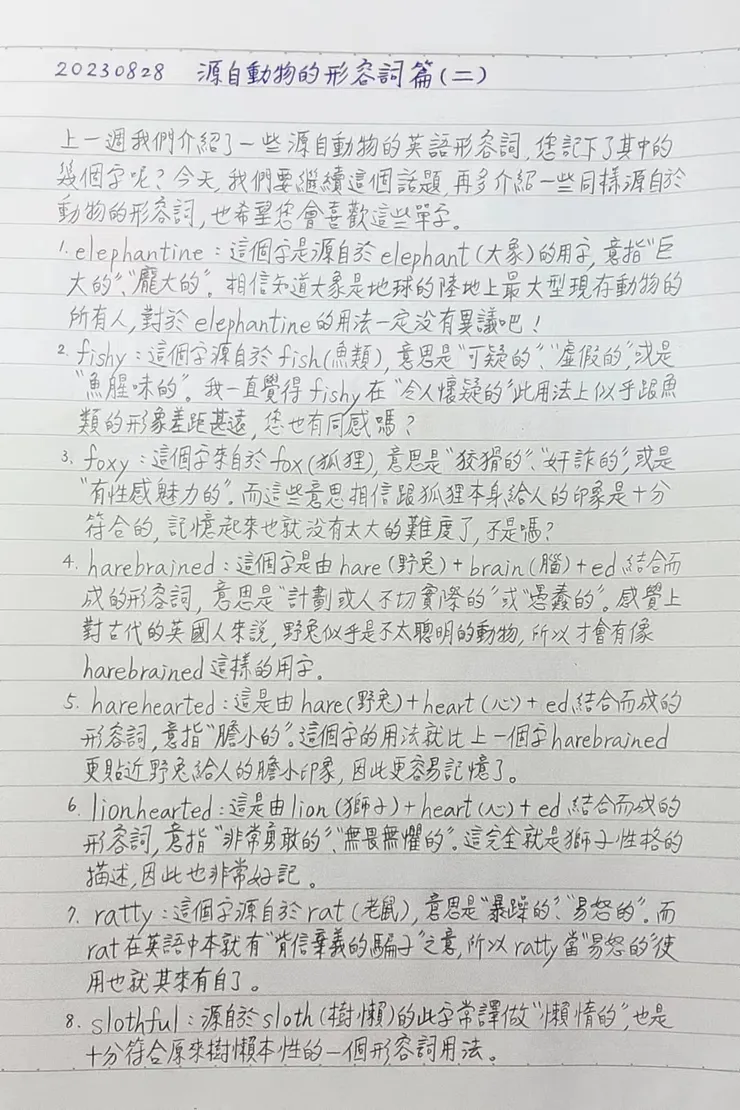 20230828 源自動物的形容詞篇(二)
上一週我們介紹了一些源自動物的英語形容詞,您記下了其中的
幾個字呢?今天,我們要繼續這個話題,再多介紹一些同樣源自於
動物的形容詞,也希望您會喜歡這些單字。
1. elephantine:這個字是源自於elephant(大象)的用字,意指“巨
大的”、“龐大的”。相信知道大象是地球的陸地上最大型現存動物的
所有人,對於elephantine的用法一定沒有異議吧!
2. fishy:這個字源自於fish(魚類),意思是“可疑的”、“虛假的”,或是
“魚腥味的”。我一直覺得fishy在“令人懷疑的”此用法上似乎跟魚
類的形象差距甚遠,您也有同感嗎?
3. foxy:這個字來自於fox(狐狸),意思是“狡猾的”、“奸詐的”,或是
“有性感魅力的”。而這些意思相信跟狐狸本身給人的印象是十分
符合的,記憶起來也就沒有太大的難度了,不是嗎?
4. harebrained:這個字是由hare(野兔)+brain(腦)+ed結合而
成的形容詞,意思是“計劃或人不切實際的”或“愚蠢的”。感覺上
對古代的英國人來說,野兔似乎是不太聰明的動物,所以才會有像
harebrained這樣的用字。
5. harehearted:這是由hare(野兔)+heart(心)+ed結合而成的
形容詞,意指“膽小的”。這個字的用法就比上一個字harebrained
更貼近野兔給人的膽小印象,因此更容易記憶了。
6. lionhearted:這是由lion(獅子)+heart(心)+ed結合而成的
形容詞,意指“非常勇敢的”、“無畏無懼的”。這完全就是獅子性格的
描述,因此也非常好記。
7. ratty:這個字源自於rat(老鼠),意思是“暴躁的”、“易怒的”。而
rat在英語中本就有“背信棄義的騙子”之意,所以ratty當“易怒的”使
用也就其來有自了。
8. slothful:源自於sloth(樹懶)的此字常譯做“懶惰的”,也是
十分符合原來樹懶本性的一個形容詞用法。